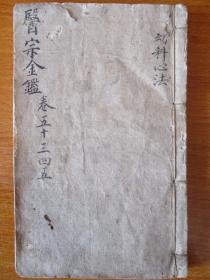 幼科心法
醫宗金鑑
卷五十三四五